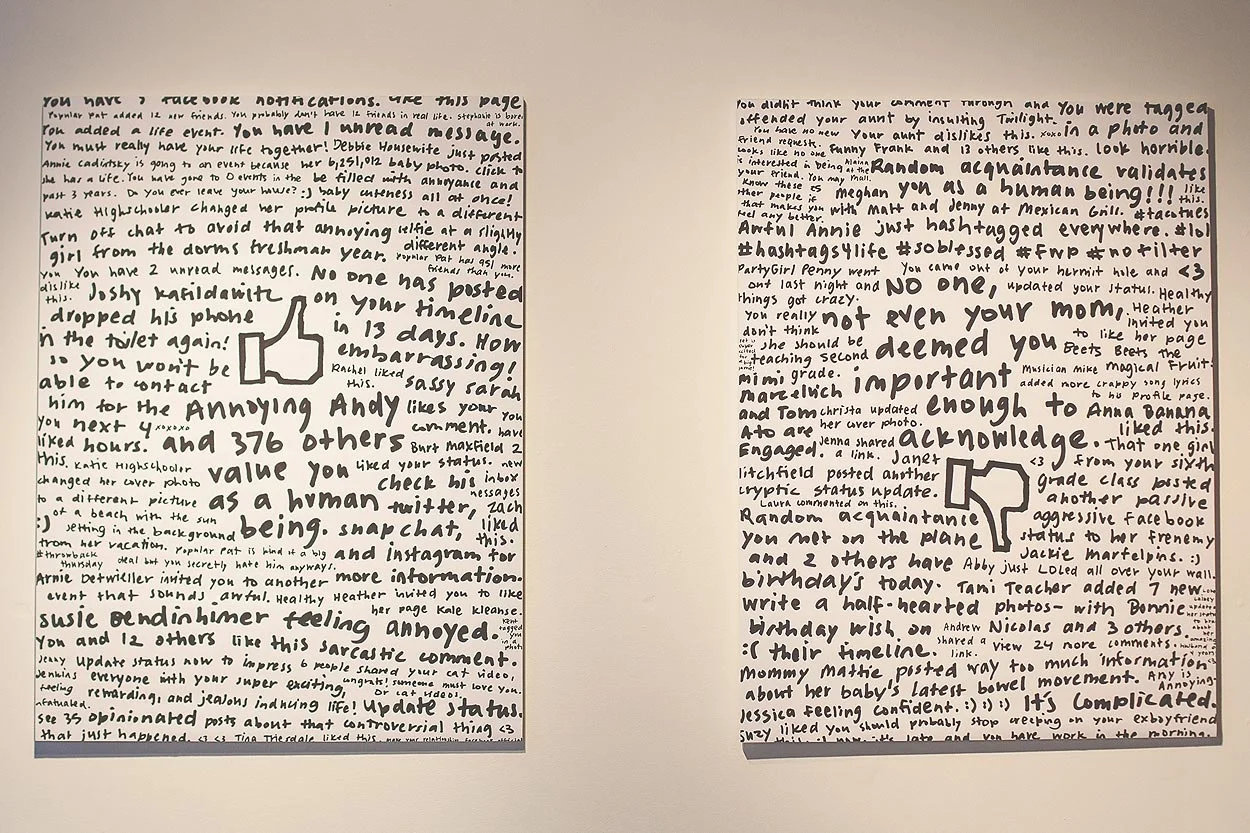 You have 7 facebook notifications. Like this page
Popular Pat added 12 new friends. You probably don't have 12 friends in real life. Stephanie is bored at work.
You added a life event. You have 1 unread message.
You must really have your life together! Debbie Housewife just posted
Annie Cadinsky is going to an event because her 6,251,012 baby photo. Click to
she has a life. You have gone to 0 events in the be filled with annoyance and
past 3 years. Do you ever leave your house? :) baby cuteness all at once!
Katie Highschooler changed her profile picture to a different
Turn off chat to avoid that annoying selfie at a slightly
girl from the dorms freshman year. different angle.
Popular Pat has 951 more friends than you.
You You have 2 unread messages. No one has posted
dislike this. Joshy Kafildawitz on your timeline
dropped his phone in 13 days. How
in the toilet again! embarrassing!
so you won't be Rachel liked this.
able to contact sassy sarah
him for the Annoying Andy likes your You
you next 4 xoxoxo comment. have
liked hours. and 376 others Burt Maxfield 2
this. Katie Highschooler value you liked your status. new
changed her cover photo check his inbox
to a different picture as a human twitter, messages
of a beach with the sun zach
:) setting in the background being. snapchat, liked this.
from her vacation. Popular Pat is kind of a big and instagram for
#throwback thursday deal but you secretly hate him anyways.
Arnie Detwieller invited you to another more information.
event that sounds awful. Healthy Heather invited you to like
her page Kale Kleanse.
susie Bendinhimer feeling annoyed.
Kent tagged you in a photo
You and 12 others like this sarcastic comment.
Jenny Update status now to impress 6 people shared your cat video,
Jenkins everyone with your super exciting, congrats! someone must love you.
feeling rewarding, and jealous inducing life! Or cat videos.
infatuated. Update status.
see 35 opinionated posts about that controversial thing <3
that just happened. <3 <3 Tina Tiersdale liked this.
You didn't think your comment through and You were tagged
offended your aunt by insulting Twilight.
You have no new Your aunt dislikes this. xoxo in a photo and
friend requests. Funny Frank and 13 others like this. look horrible.
Looks like no one is interested in being your friend. You may know these 25 other people if that makes you feel any better.
Alaina at the mall.
Random acquaintance validates
meghan you as a human being!!! like this.
with Matt and Jenny at Mexican Grill. #tacotues
Awful Annie just hashtagged everywhere. #lol
#hashtags4life #soblessed #fwp #nofilter
PartyGirl Penny went You came out of your hermit hole and <3
out last night and No one, updated your status. Healthy
things got crazy. Heather
You really not even your mom, invited you
don't think to like her page
she should be deemed you Beets Beets The
teaching second Magical Fruit!
mimi grade. important Musician Mike
added more crappy song lyrics
marcelvich to his profile page.
and Tom christa updated enough to Anna Banana
Ato are her cover photo. liked this.
Engaged. Jenna shared acknowledge. That one girl
a link. Janet <3 from your sixth
litchfield posted another grade class posted
cryptic status update. another passive
Laura commented on this.
Random acquaintance aggressive Facebook
you met on the plane status to her frenemy
and 2 others have Jackie Marfelpins. :)
Abby just LOLed all over your wall.
birthday's today. Tani Teacher added 7 new
write a half-hearted photos- with Bonnie
birthday wish on Andrew Nicolas and 3 others.
:( their timeline. shared a link. view 24 more comments.
Mommy Mattie posted way too much information
about her baby's latest bowel movement. Amy is Annoying.
Jessica feeling confident. :) :) :) It's complicated.
Suzy liked you should probably stop creeping on your exboyfriend
this. it's late and you have work in the morning.